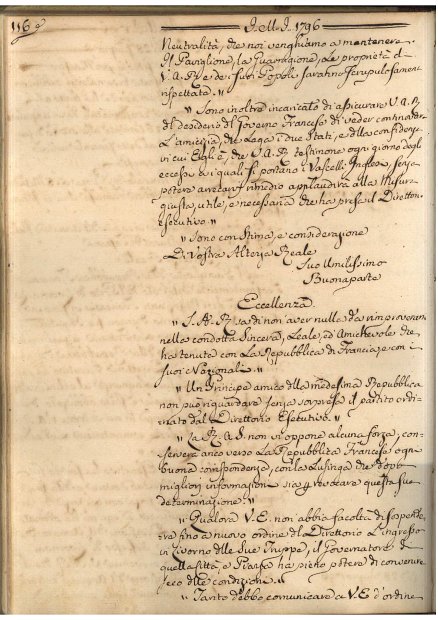 116
I. M. I. 1796
Neutralità, che noi venghiamo a mantenere.
Il Paviglione, La Guarnigione, Le proprietà di
V. A. R. e de' suoi Popoli saranno scrupulosament
rispettata. "
" Sono inoltre incaricato di assicurare V. A. R.
del desiderio del Governo Francese di veder continuare
L'amicizia, che Lega i due Stati, e della confidenza
in cui Egli è, che V. A. R. testimone ogni giorno degli
eccessi, a' quali si portano i Vascelli Inglesi, senza
potere arrecarvi rimedio applaudirà alla Misura
giusta, utile, e necessaria che ha preso il Direttorio
Esecutivo. "
" Sono con Stima, e considerazione
Di Vostra Altezza Reale
Suo Umilissimo
Buonaparte
Eccellenza
" S. A. R. sa di non aver nulla da rimproverarsi
nella condotta Sincera, Leale, ed Amichevole che
ha tenuta con La Repubblica di Francia, e con i
suoi Nazionali. "
" Un Principe amico della medesima Repubblica
non può riguardare senza sorpresa il partito ordi-
nato dal Direttorio Esecutivo. "
" La R. A. S. non vi oppone alcuna forza, con-
serverà anco verso La Repubblica Francese ogni
buona corrispondenza, con la Lusinga che dopo
migliori informazioni sia p revocare questa sua
determinazione. "
" Qualora V. E. non abbia facoltà di sospende-
re fino a nuovo ordine del Direttorio L'ingresso
in Livorno delle sue Truppe, il Governatore di
quella Città, e Piazza ha pieno potere di convenire
seco delle condizioni. "
" Tanto debbo comunicare a V. E. d'ordine